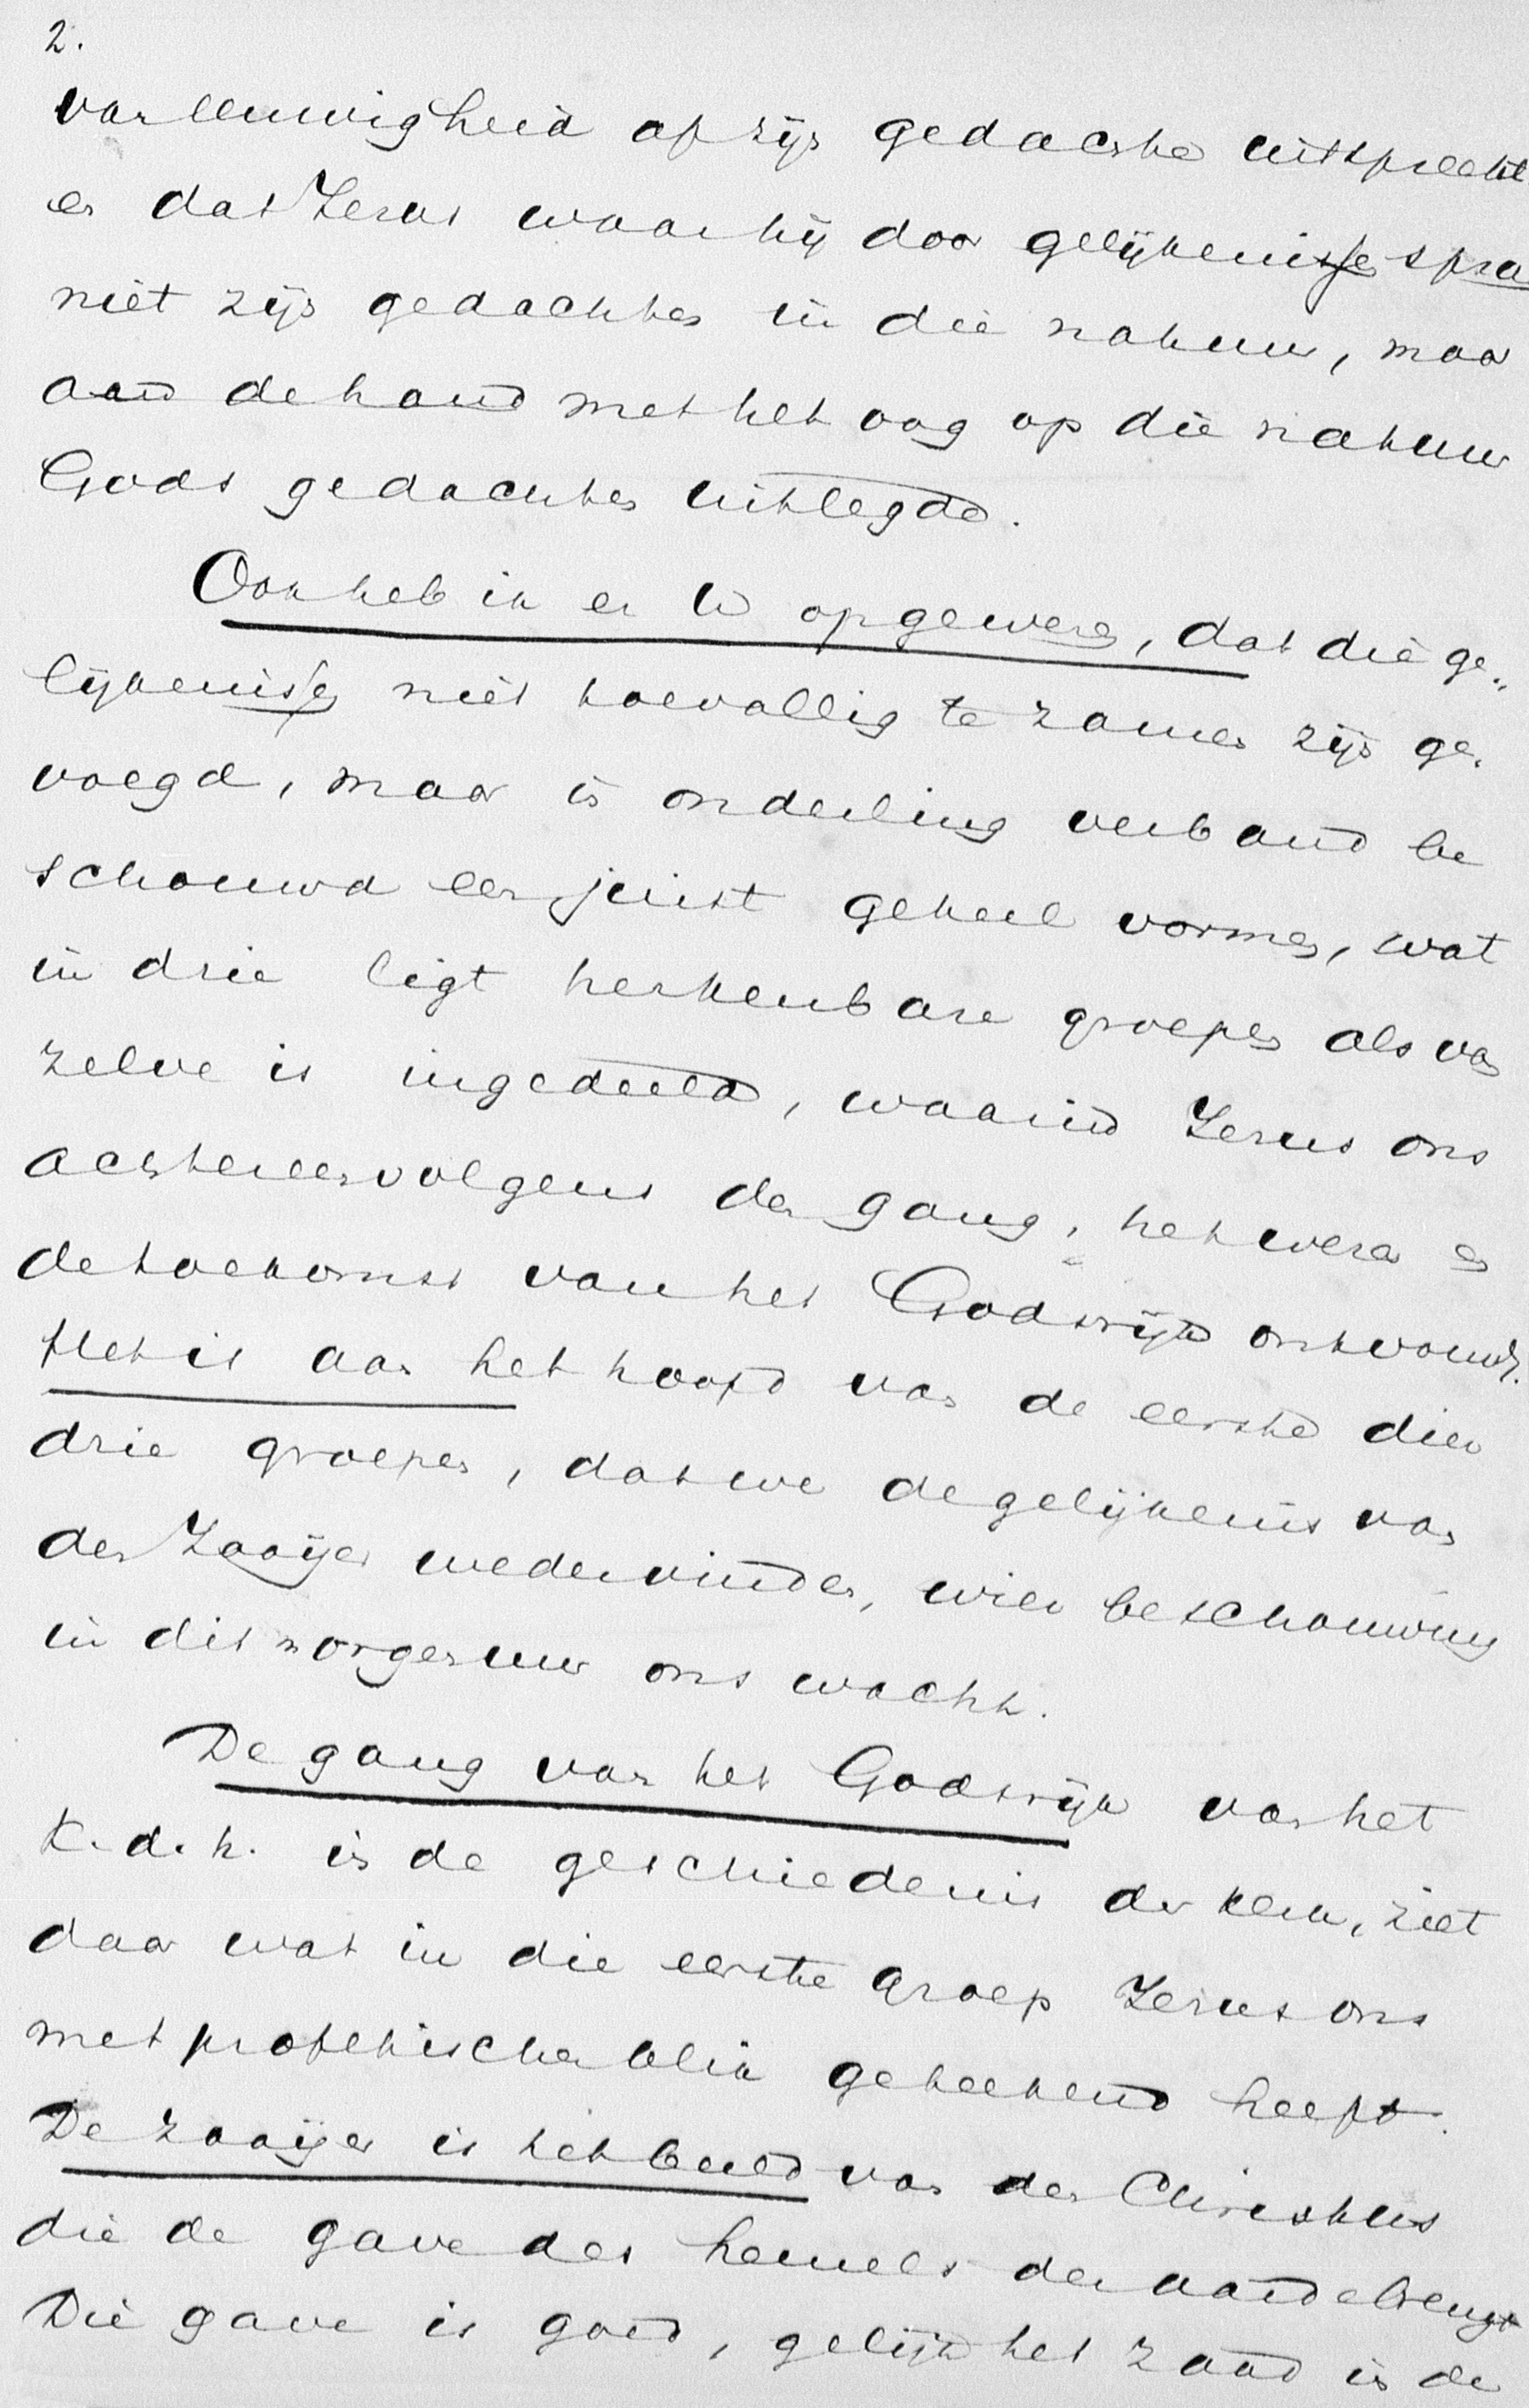 2.
van eeuwigheid af zijn gedachte uitspreekt
en dat Jezus waar hij door gelijkenissen spra
niet zijn gedachten in die natuur, maar
aan de hand met het oog op die natuur
Gods gedachten uitlegde.
Ook heb ik er U op gewezen, dat die ge„
lijkenissen niet toevallig te zamen zijn ge„
voegd, maar in onderling verband be
schouwd een juist geheel vormen, wat
in drie ligt herkenbare groepen als van
zelve is ingedeeld, waarin Jezus ons
achtereenvolgens den gang, het wezen en
de toekomst van het Godsrijk ontvouwt.
Het is aan het hoofd van de eerste dier
drie groepen, dat we de gelijkenis van
den Zaaijer wedervinden, wier beschouwing
in dit morgenuur ons wacht.
De gang van het Godsrijk van het
K. d. h. is de geschiedenis der kerk, ziet
daar wat in die eerste groep Jezus ons
met profetischen blik geteekend heeft.
De zaaijer is het beeld van den Christus
die de gave des hemels der aarde brengt
Die gave is goed, gelijk het zaad is de